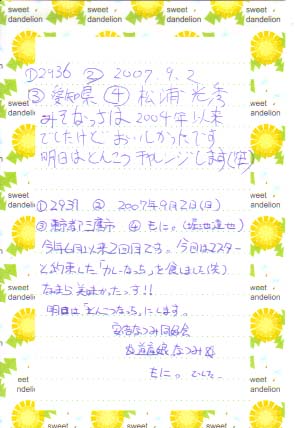 sweet dandelion sweet dandelion sweet dandelion sweet dandelion
①2936 ② 2007.9.2
③愛知県 ④ 松浦 光秀
みそなっちは 2004年以来
でしたけど おいしかったです
明日はとんこつチャレンジします(笑)
①2937 ② 2007年9月2日(日)
③東京都三鷹市 ④ もに。
今年6月以来2回目です。今回はマスター
と約束した「カレーなっち」を食しまして(笑)
なまら美味かったっす!!
明日は「とんこつなっち」にします。
安倍なつみ同好会
もに。 でした。
sweet dandelion
sweet dandelion
sweet dandelion
sweet dandelion
sweet dandelion
sweet dandelion
sweet sweet sweet